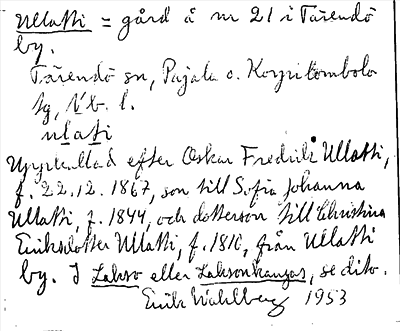 Ullatti = gård å nr 21 i Tärendö
by.
Tärendö sn, Pajala o. Korpilombolo
tg, Nb. l.
ulati
Uppkallad efter Oskar Fredrik Ullatti,
f. 22.12. 1867, son till Sofia Johanna
Ullatti, f. 1844, och dotterson till Christina
Eriksdotter Ullatti, f. 1810, från Ullatti
by. J Lakso eller Laksonkangas, se dito.
Erik Wahlberg 1953